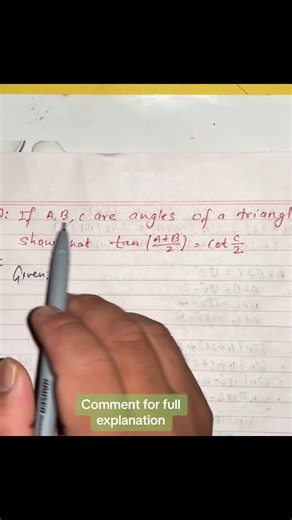 Q: If A, B, C are angles of a triangl
show that tan(A+B/2) = cot C/2
Given:
Comment for full
explanation